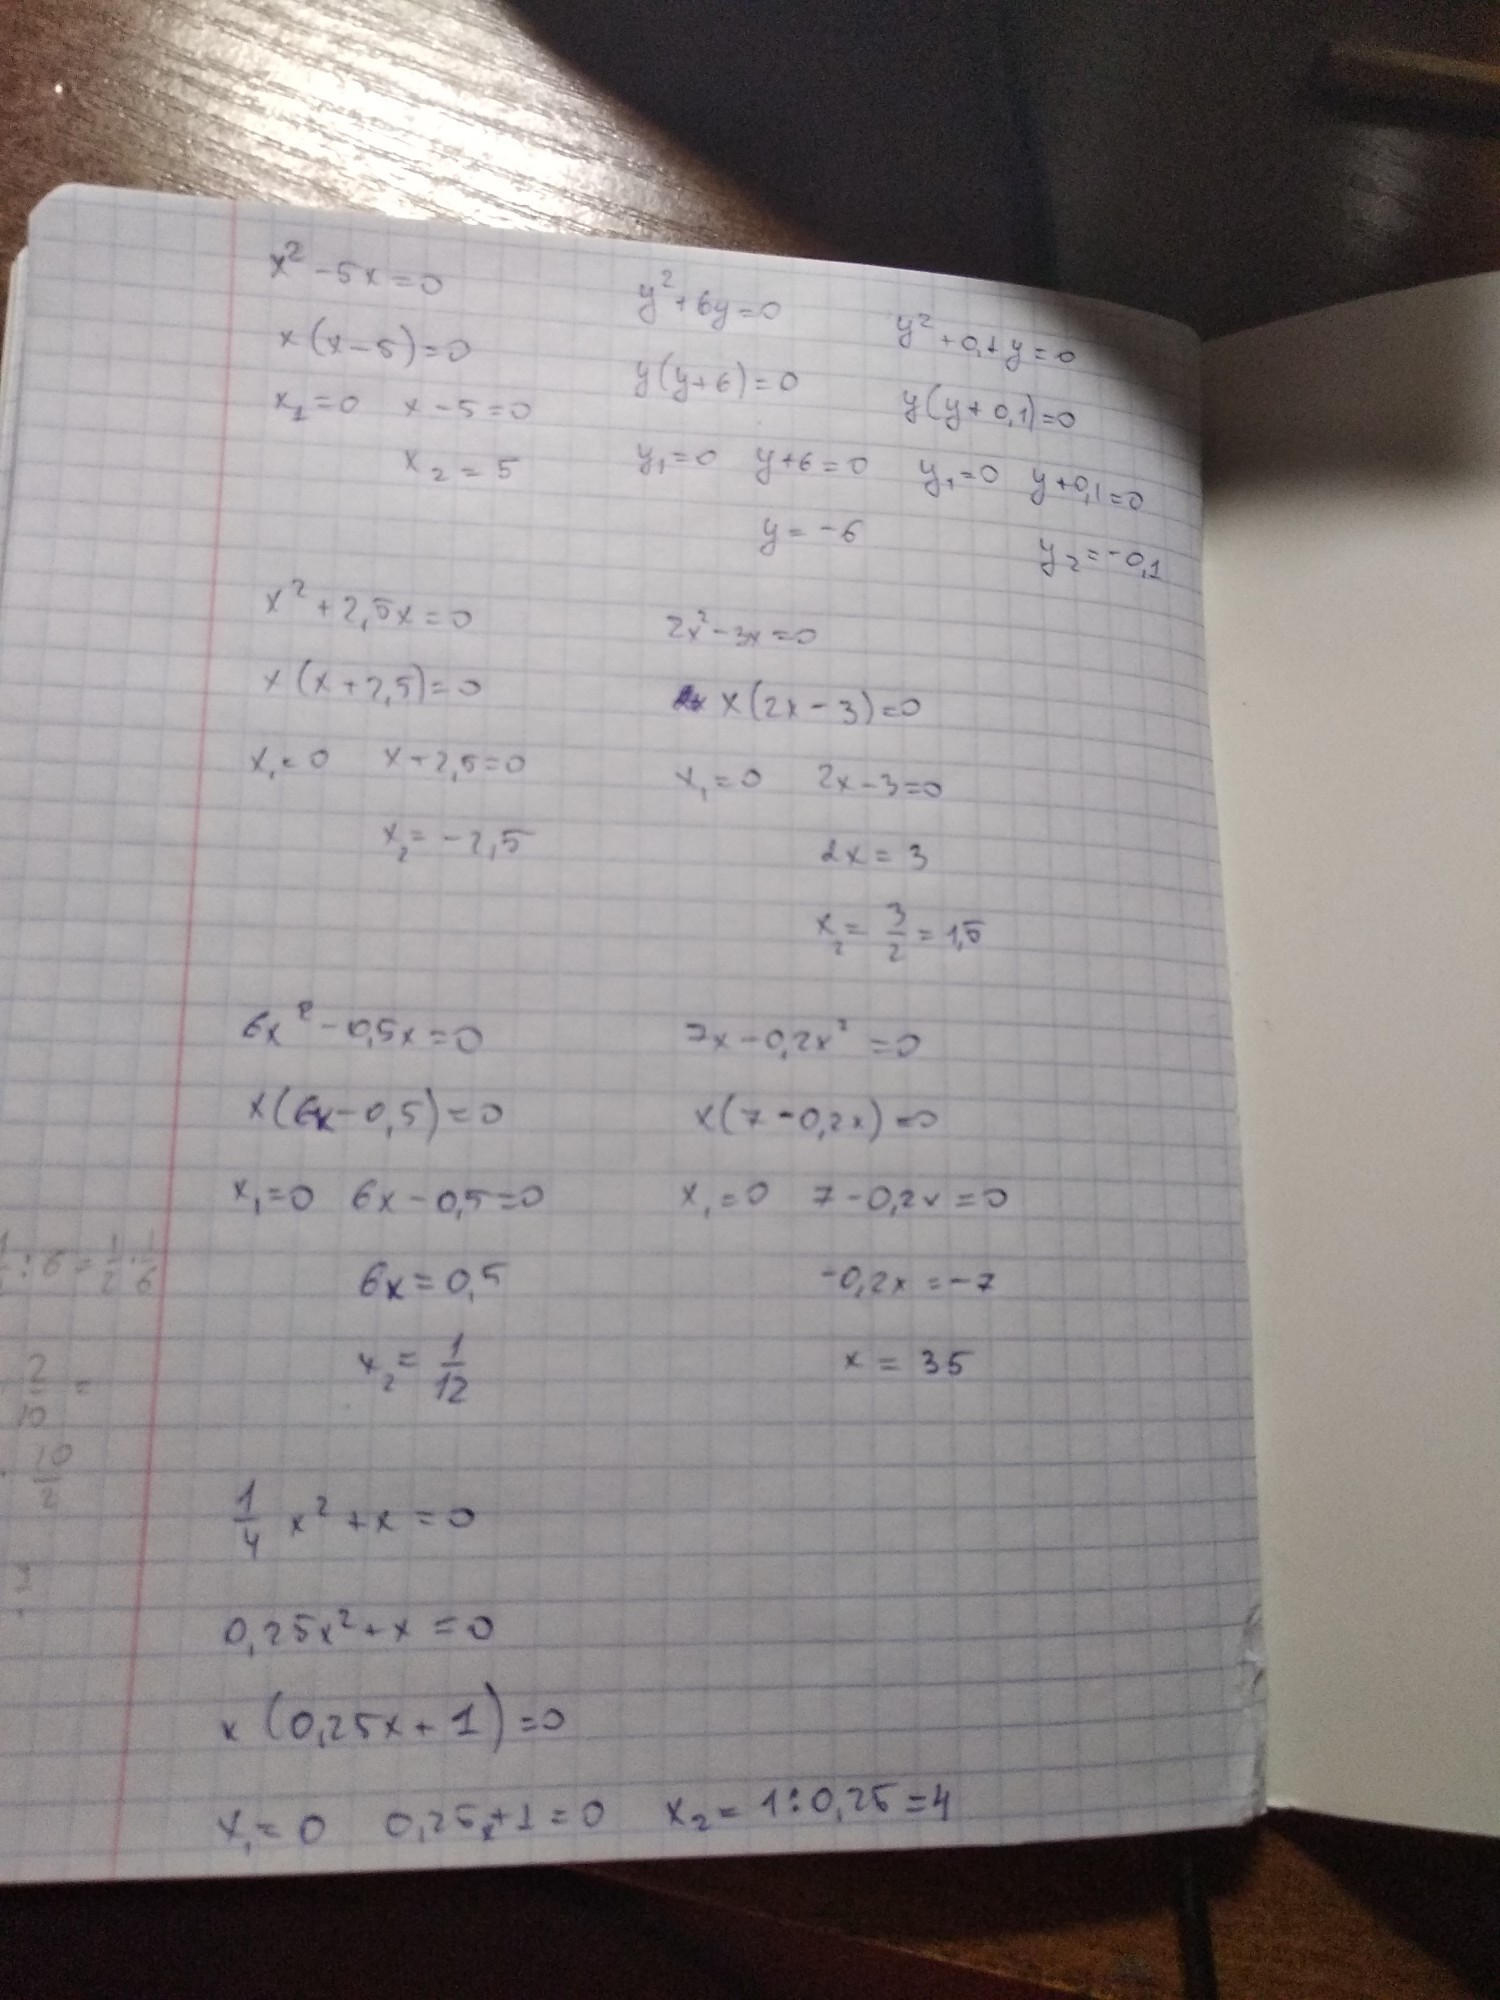 x² - 5x = 0
x(x - 5) = 0
x₁ = 0   x - 5 = 0
x₂ = 5
y² + 6y = 0
y(y + 6) = 0
y₁ = 0   y + 6 = 0
y = -6
y² + 0,1y = 0
y(y + 0,1) = 0
y₁ = 0   y + 0,1 = 0
y₂ = -0,1
x² + 2,5x = 0
x(x + 2,5) = 0
x₁ = 0   x + 2,5 = 0
x₂ = -2,5
2x² - 3x = 0
x(2x - 3) = 0
x₁ = 0   2x - 3 = 0
2x = 3
x₂ = 3/2 = 1,5
6x² - 0,5x = 0
x(6x - 0,5) = 0
x₁ = 0   6x - 0,5 = 0
6x = 0,5
x₂ = 1/12
7x - 0,2x² = 0
x(7 - 0,2x) = 0
x₁ = 0   7 - 0,2x = 0
-0,2x = -7
x = 35
: 6 = 1/2 · 1/6
2/10 =
· 10/2
1/4 x² + x = 0
0,25x² + x = 0
x(0,25x + 1) = 0
x₁ = 0   0,25x + 1 = 0   x₂ = 1 : 0,25 = 4